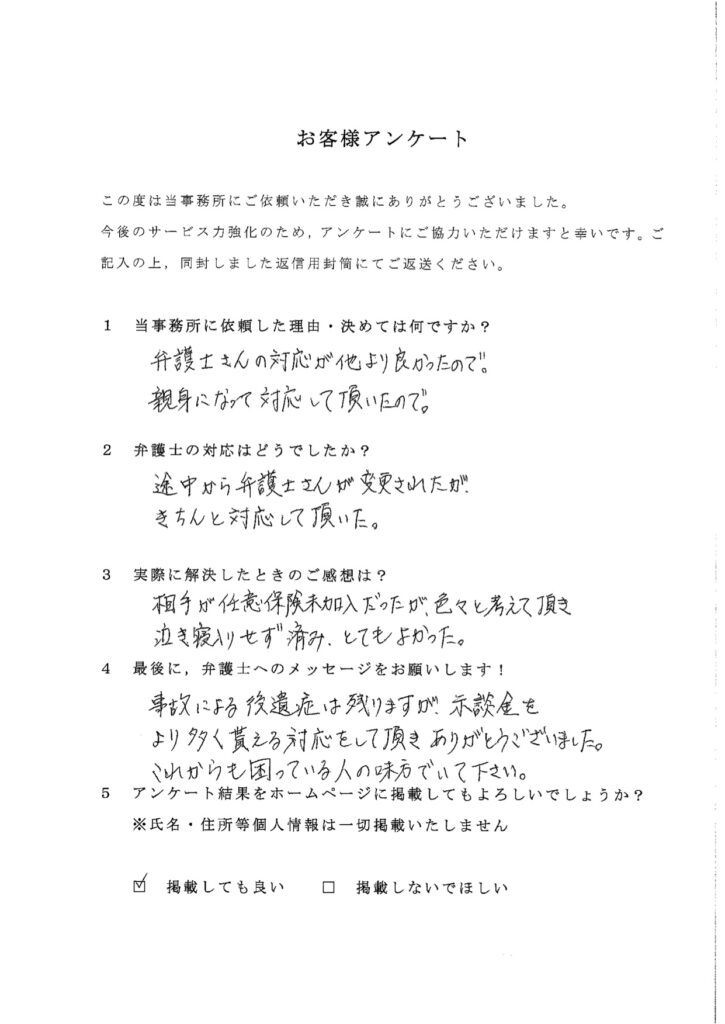 お客様アンケート
この度は当事務所にご依頼いただき誠にありがとうございました。
今後のサービス力強化のため，アンケートにご協力いただけますと幸いです。ご
記入の上，同封しました返信用封筒にてご返送ください。
1 当事務所に依頼した理由・決めては何ですか？
弁護士さんの対応が他より良かったので。
親身になって対応して頂いたので。
2 弁護士の対応はどうでしたか？
途中から弁護士さんが変更されたが、
きちんと対応して頂いた。
3 実際に解決したときのご感想は？
相手が任意保険未加入だったが、色々と考えて頂き
泣き寝入りせず済み、とてもよかった。
4 最後に，弁護士へのメッセージをお願いします！
事故による後遺症は残りますが、示談金を
より多く貰える対応をして頂きありがとうございました。
これからも困っている人の味方でいて下さい。
5 アンケート結果をホームページに掲載してもよろしいでしょうか？
※氏名・住所等個人情報は一切掲載いたしません
☑ 掲載しても良い □ 掲載しないでほしい